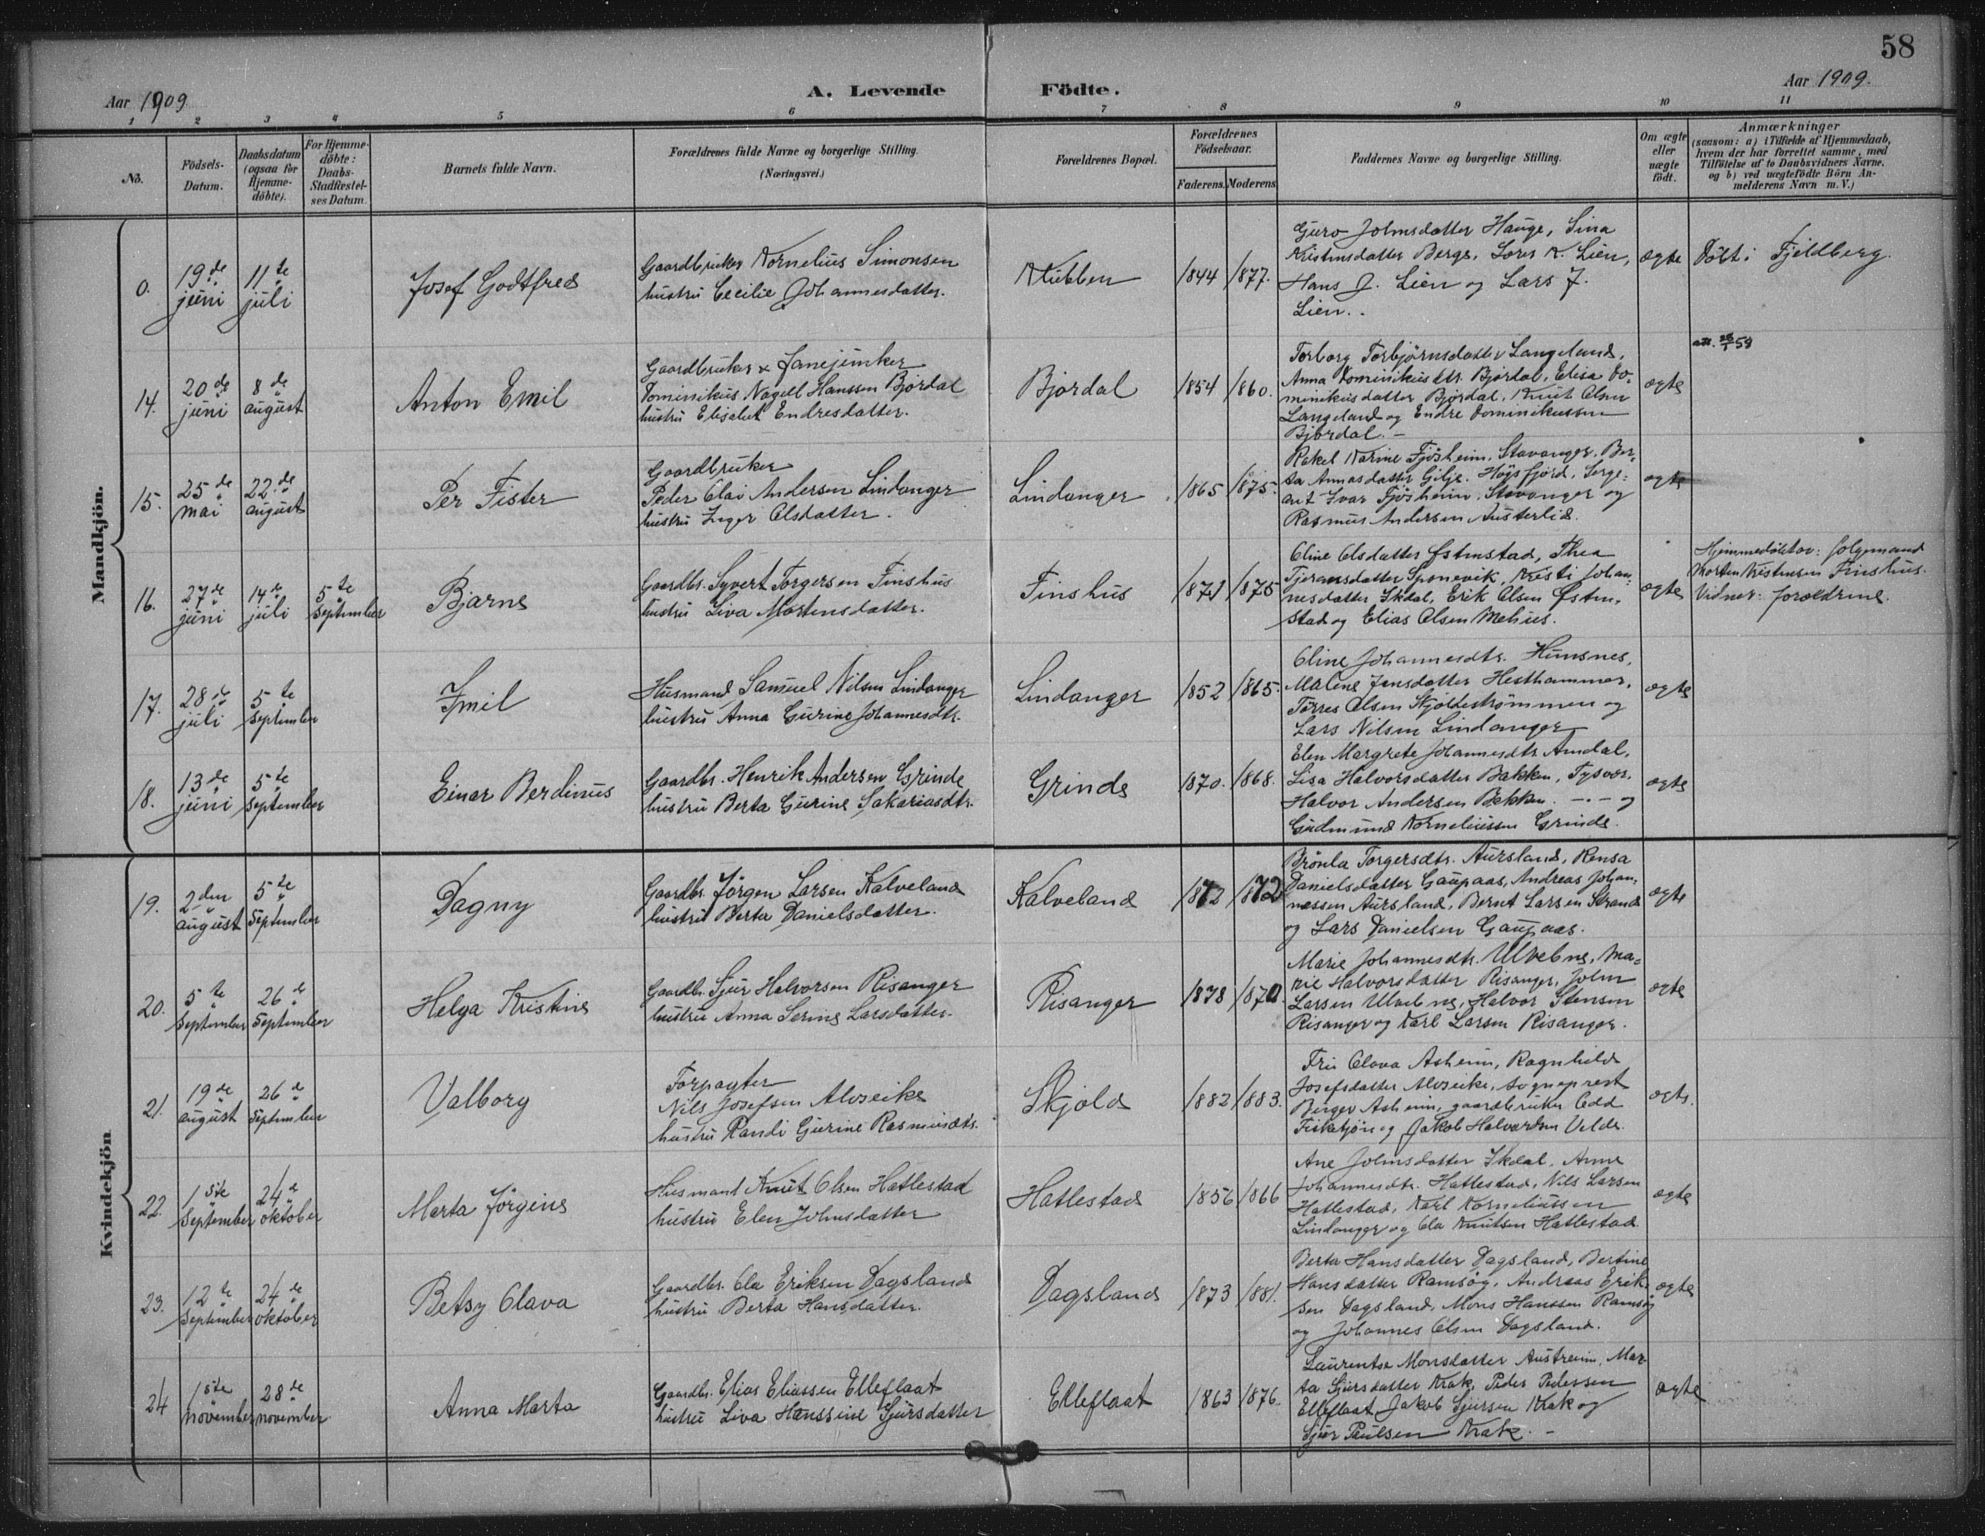 58
Aar 1909.
A. Levende Födte.
Aar 1909.
1 2 3 4 5 6 7 8 9 10 11
No.
Födsels-
Datum.
Daabsdatum
(ogsaa for
Hjemme-
döbte).
For Hjemme-
döbte:
Daabs-
Stadfæstel-
ses Datum.
Barnets fulde Navn.
Forældrenes fulde Navne og borgerlige Stilling.
(Næringsvei.)
Forældrenes Bopæl.
Forældrenes
Födselsaar.
Faderens. Moderens
Faddernes Navne og borgerlige Stilling.
Om ægte
eller
uægte
födt.
Anmærkninger
(saasom: a) i Tilfælde af Hjemmedaab,
hvem der har forrettet samme, med
Tilföielse af to Daabsvidners Navne.
og b) ved uægtefödte Börn An-
melderens Navn m. V.)
Mandkjön.
0.
19de
juni
11te
juli
Josef Godtfred
Gaardbruker Kornelius Simonsen
hustru Cecilie Johannesdatter.
Klubben
1844 1877.
Guro Johnsdatter Hauge, Sina
Kristinsdatter Berge, Lars K. Lien,
Hans J. Lien og Lars J.
Lien.
ægte
Döbt i Fjeldberg.
14.
20de
juni
8de
august
Anton Emil
Gaardbruker & Fanejunker
Dominikus Nagell Hanssen Bjordal
hustru Elisabet Endresdatter.
Bjordal
1854 1860.
Torborg Torbjørnsdatter Langeland,
Anna Dominikusdtr. Bjordal, Elisa Do-
minikusdatter Bjordal, Knut Olsen
Langeland og Endre Dominikussen
Bjordal.
ægte
15.
25de
mai
22de
august
Per Fister
Gaardbruker
Peder Olai Andersen Lindanger
hustru Inger Olsdatter.
Lindanger
1865 1875.
Rakel Karine Fjøsheim, Stavanger, Ber-
ta Annasdatter Gilje, Høgsfjord, Serge-
ant Ivar Fjøsheim, Stavanger og
Rasmus Andersen Austerlid.
ægte
16.
27de
juni
14de
juli
5te
September
Bjarne
Gaardbr. Syvert Torgersen Finshus
hustru Liva Mortensdatter.
Finshus
1871 1875
Oline Olsdatter Østenstad, Thea
Tjeransdatter Sponevik, Kristi Johan-
nesdatter Ikdal, Erik Olsen Østen-
stad og Elias Olsen Mehus.
ægte
Hjemmedøbtav: folgemand
Morten Kristensen Finshus.
Vidner: forældrene.
17.
28de
juli
5te
September
Emil
Husmand Samuel Nilsen Lindanger
hustru Anna Gurine Johannesdtr.
Lindanger
1852 1865.
Oline Johannesdtr. Humsnes,
Malene Jensdatter Hesthammer,
Tørres Olsen Skjoldestrømmen og
Lars Nilsen Lindanger
ægte
18.
13de
juni
5te
September
Einar Berdinus
Gaardbr. Henrik Andersen Grinde
hustru Berta Gurine Sakariasdtr.
Grinde
1870. 1868.
Elen Margrete Johannesdtr. Amdal,
Lisa Halvorsdatter Bakken, Tysvær.
Halvor Andersen Bakken. — og
Gudmund Korneliussen Grinde.
ægte
Kvindekjön
19.
2den
august
5te
September
Dagny
Gaardbr. Jörgen Larsen Kalveland
hustru Berta Danielsdatter.
Kalveland
1872 1872
Brønla Torgersdtr. Aursland, Rensa
Danielsdatter Gaupaas, Andreas Johan-
nessen Aursland, Bernt Larsen Strand
og Lars Danielsen Gaupaas.
ægte
20.
5te
September
26de
September
Helga Kristine
Gaardbr. Sjur Halvorsen Risanger
hustru Anna Serine Larsdatter.
Risanger
1878 1870
Marie Johannesdtr. Ulvebne, Ma-
rie Halvorsdatter Risanger, John
Larsen Ulvebne, Halvor Stensen
Risanger og Karl Larsen Risanger.
ægte
21.
19de
august
26de
September
Valborg
Forpagter
Nils Josefsen Alvseike
hustru Randi Gurine Rasmusdtr.
Skjold
1882 1883.
Fru Olava Asheim, Ragnhild
Josefsdatter Alvseike, sogneprest
Birger Asheim, gaardbruker Odd
Fisketjøn og Jakob Halvardsen Velde.
ægte.
22.
1ste
September
24de
oktober
Marta Jörgine
Husmand Knut Olsen Hatlestad
hustru Elen Johnsdatter
Hatlestad
1856 1866
Ane Johnsdatter Ikdal, Anne
Johannesdtr. Hatlestad, Nils Larsen
Hatlestad, Karl Korneliussen
Lindanger og Ola Knutsen Hatlestad
ægte
23.
12te
September
24de
oktober
Betsy Olava
Gaardbr. Ola Eriksen Dagsland
hustru Berta Hansdatter.
Dagsland
1873 1881.
Berta Hansdatter Dagsland, Bertine
Hansdatter Ramsøg, Andreas Erik-
sen Dagsland, Mons Hanssen Ramsøg
og Johannes Olsen Dagsland.
ægte
24
1ste
november
28de
november
Anna Marta
Gaardbr. Elias Eliassen Elleflaat
hustru Liva Hanssine Sjursdatter
Elleflaat
1863 1876.
Laurentse Monsdatter Austreim, Mar-
ta Sjursdatter Krak, Peder Pedersen
Elleflaat, Jakob Sjursen Krak og
Sjur Paulsen Krak.
ægte